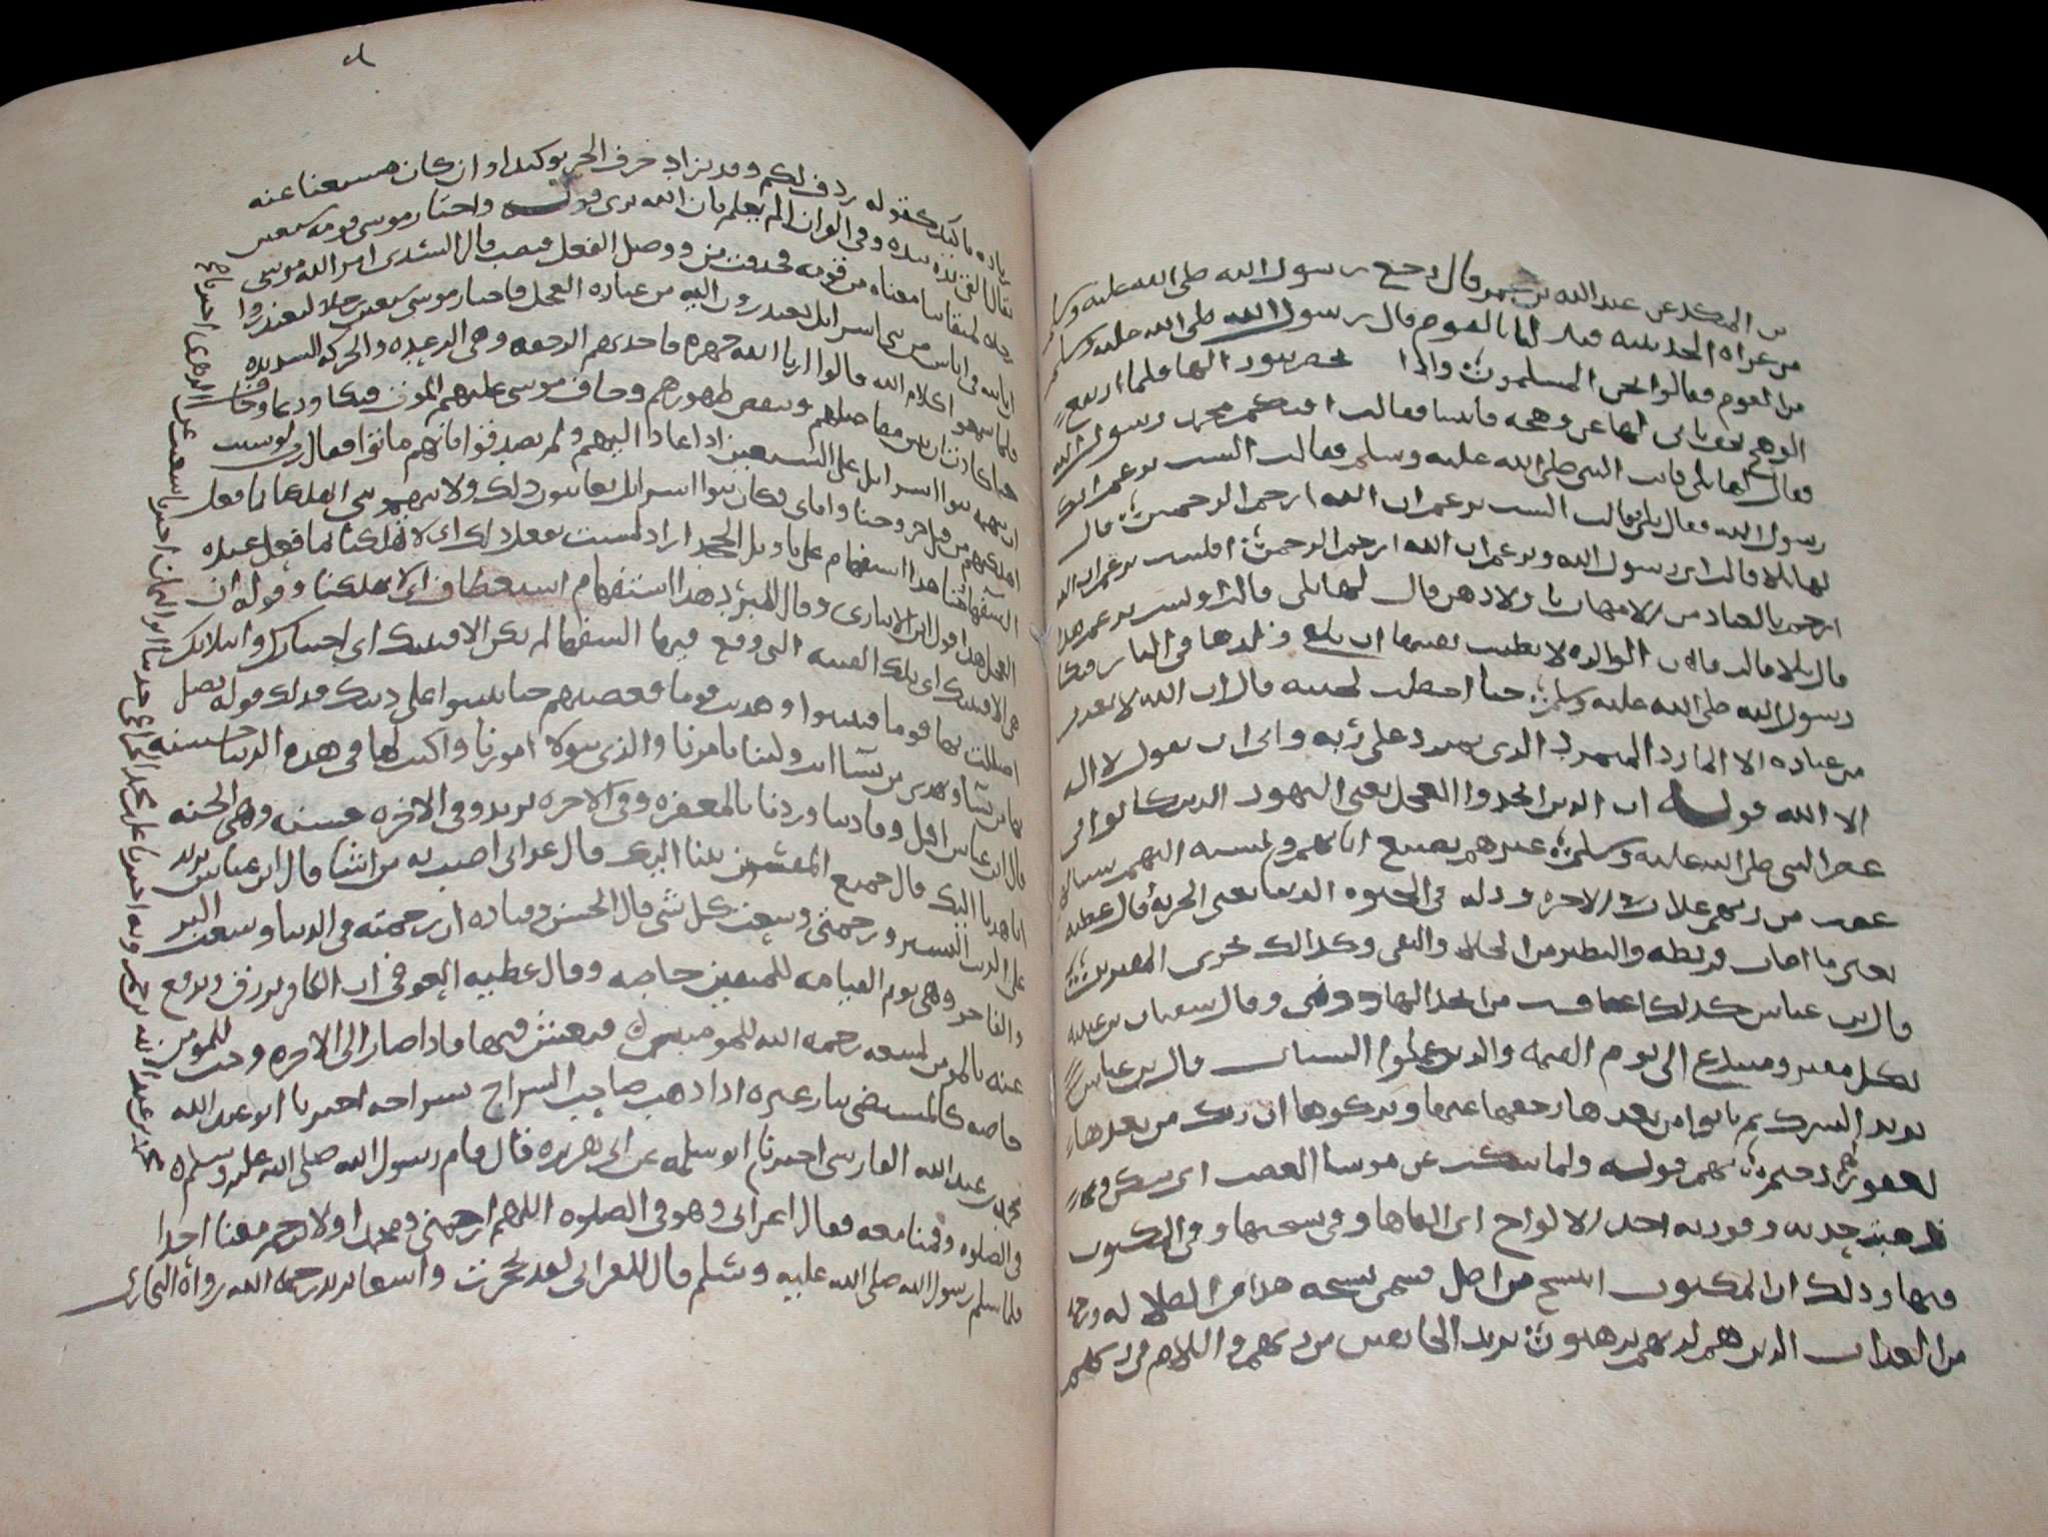 بن المنكدر عن عبد الله بن عمر قال رجع رسول الله صلى الله عليه وسلم
من غزاه الحديبيه فبلـ لما بالقوم قال رسول الله صلى الله عليه وسلم
من القوم فقالوا نحن المسلمون واذا
رسول الله
فقال لها بلى فاتت النبي صلى الله عليه وسلم فقالت الست تزعم انك
رسول الله فقال بلى قالت الست تزعم ان الله ارحم الراحمين قال
لها بلى قالت اى رسول الله وتزعم ان الله ارحم الراحمين افليس تزعم ان الله
ارحم بالعباد من الامهات باولادهن قال لها بلى قالت اوليس تزعم هذا
قال بلى قالت فان الوالده لا يطيب نفسها ان يلقى ولدها في النار فبكا
رسول الله صلى الله عليه وسلم حتا اخضلت لحيته قال ان الله لا يعذب
من عباده الا المارد المتمرد الذى يتمرد على ربه وابى ان يقول لا اله
الا الله قوله ان الذين اتخذوا العجل يعنى اليهود الذين كانوا في
عصر النبي صلى الله عليه وسلم عيرهم بصنيع ابائهم ونسبه اليهم سينالهم
غضب من ربهم عذاب الاخره وذله في الحيوه الدنيا يعنى الجزيه قال عطيه
يعنى ما اصاب قريظه والنظير من الجلا والنفى وكذالك نجزى المفترين
قال ابن عباس كذلك اعاقب من اتخذ الها دونى وقال سفيان بن عيينه
لكل مفتر ومبتدع الى يوم القيمه والذين عملوا السيات قال ابن عباس
يريد الشرك ثم تابوا من بعدها رجعوا عنها وتركوها ان ربك من بعدها
لغفور رحيم بهم قوله ولما سكت عن موسا الغضب اى سكن
ذهبت حدته وفورته اخذ الالواح اى القاها وفى نسختها وفى المكتوب
فيها وذلك ان المكتوب انتسخ من اصل فسمى نسخه هدا من الضلاله ورحمه
من العذاب الذين هم لربهم يرهبون يريد الخايفين من ربهم واللام فى لربهم
زياده تاكيد كقوله ردف لكم وقد تزاد حرف الجر توكيدا وان كان مستغنا عنه
يقال القى يده بيده وفى القران الم يعلم بان الله يرى قوله واختار موسى قومه سبعين
رجلا لميقاتنا معناه من قومه فحذفت من ووصل الفعل فنصب قال السدى امر الله موسى
ان ياتيه في اناس من بنى اسرائل يعتذرون اليه من عباده العجل فاختار موسى سبعين رجلا ليعتذروا
فلما سمعوا كلام الله قالوا ارنا الله جهره فاخذتهم الرجفه وهى الرعده والحركه الشديده
حتا كادت ان تبين مفاصلهم وتنقض ظهورهم وخاف موسى عليهم الموت فبكا ودعا وخاف
ان يتهمه بنوا اسرائل على السبعين اذا عاد اليهم ولم يصدقوا انهم ماتوا فقال رب لو شيت
اهلكتهم من قبل خروجنا واياى فكان بنوا اسرائل يعاينون ذلك ولا يتهمونى اتهلكنا بما فعل
السفها منا هذا استفهام على تاويل الجحد اراد لست تفعل ذلك اى لا تهلكنا بما فعل عبده
العجل هذا قول ابن الانبارى وقال المبرد هذا استفهام استعطاف اى لا تهلكنا وقوله ان
هى الا فتنتك اى تلك الفتنه التى وقع فيها السفها لم تكن الا فتنتك اى اختبارك وابتلاك
اضللت بها قوما فافتتنوا وهديت قوما فعصمتهم حتا ثبتوا على دينك فذلك قوله تضل
بها من تشا وتهدى من تشا انت ولينا ناصرنا والذى يتولا امورنا واكتب لنا في هذه الدنيا حسنه
قال ابن عباس اقبل وفادتنا وردنا بالمغفره وفى الاخره يريد وفى الاخره حسنه وهى الجنه
انا هدنا اليك قال جميع المفسرين تبنا اليك قال عذابى اصيب به من اشا قال ابن عباس يريد
على الذنب اليسير ورحمتى وسعت كل شى قال الحسن وقتاده ان رحمته في الدنيا وسعت البر
والفاجر وهى يوم القيامه للمتقين خاصه وقال عطيه العوفى ان الكافر يرزق ويدفع
عنه بالمومن لسعه رحمه الله للمومنين فيعيش فيها فاذا صار الى الاخره وجبت للمومن
خاصه كالمستضى بنار غيره اذا ذهب صاحب السراج بسراجه اخبرنا ابو عبد الله
محمد بن عبد الله الفارسى اخبرنا ابو سلمه عن ابى هريره قال قام رسول الله صلى الله عليه وسلم
في الصلوه وقمنا معه فقال اعرابى وهو في الصلوه اللهم ارحمنى ومحمدا ولا ترحم معنا احدا
فلما سلم رسول الله صلى الله عليه وسلم قال للاعرابى لقد تحجرت واسعا يريد رحمه الله رواه البخارى